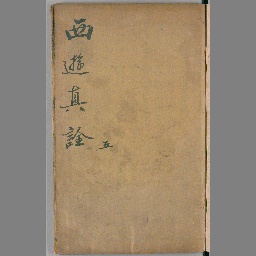 西遊真詮
五